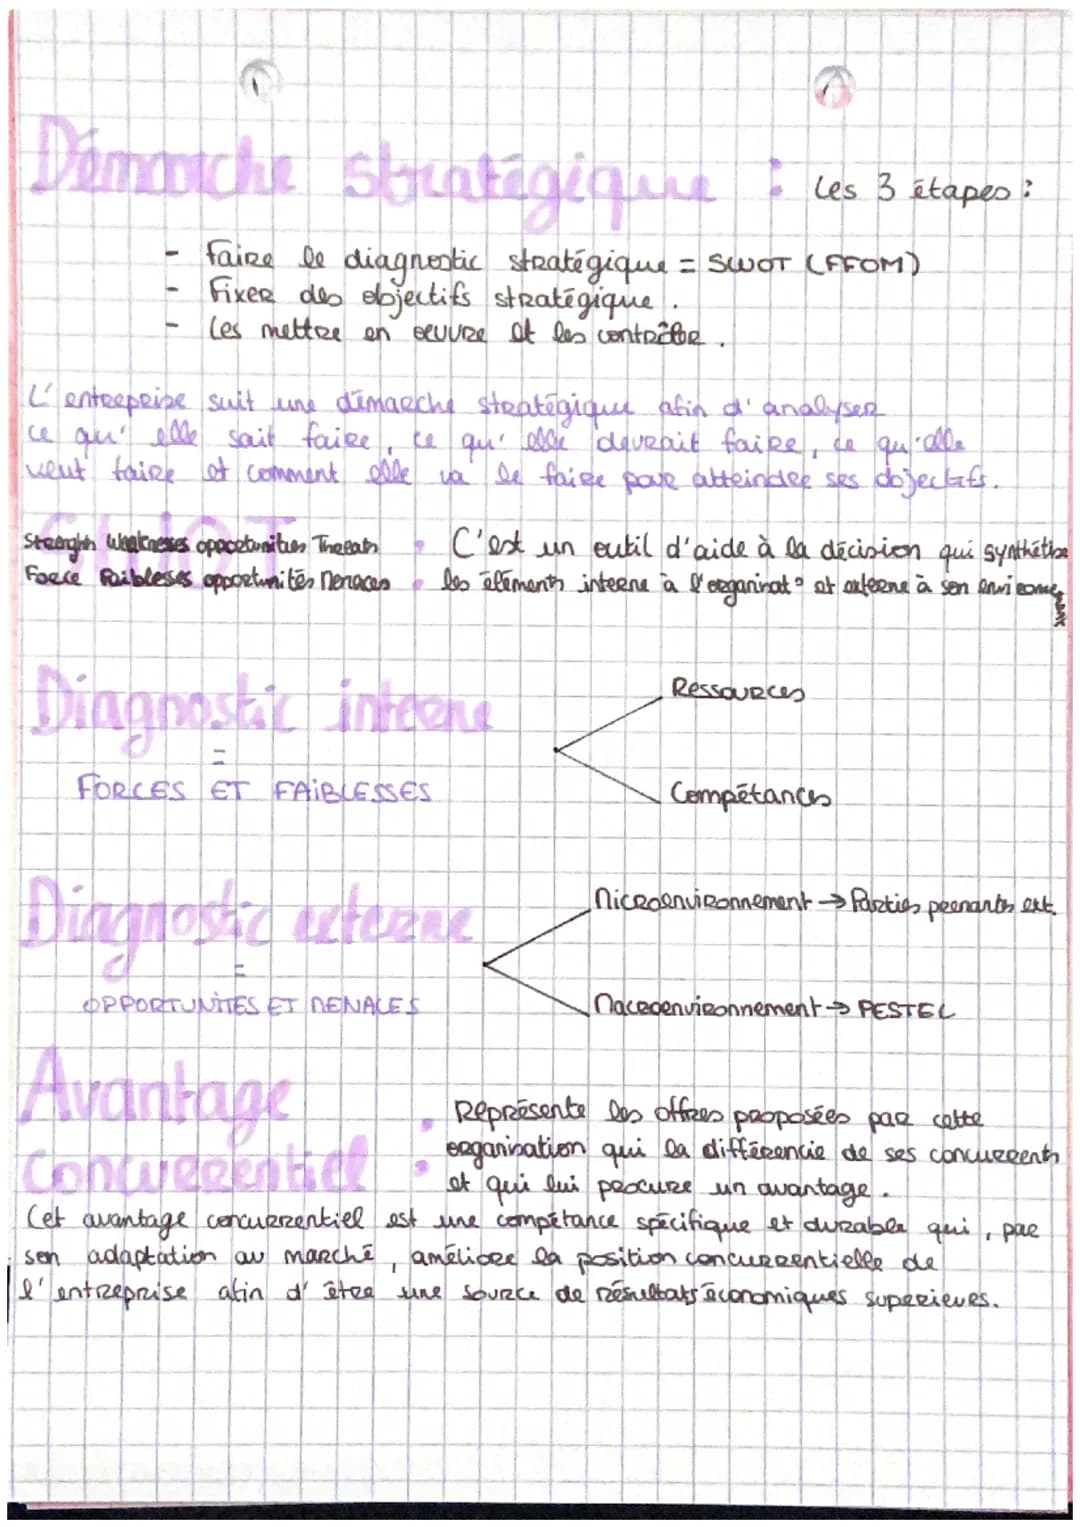 Démarche stratégique : Les 3 étapes :
- Faire le diagnostic stratégique = SWOT (FFOM)
- Fixer des objectifs stratégique.
- Les mettre en oeuvre et les contrôler.
L'entreprise suit une démarche stratégique afin d'analyser
ce qu'elle sait faire, ce qu'elle devrait faire, ce qu'elle
veut faire et comment elle va le faire pour atteindre ses objectifs.
SWOT :
Strenghts Weaknesses opportunities Threats
Force Faiblesses opportunités Menaces
C'est un outil d'aide à la décision qui synthétise
les éléments interne à l'organisat° et externe à son environnement
Diagnostic interne
=
FORCES ET FAIBLESSES
Ressources
Compétances
Diagnostic externe
=
OPPORTUNITÉS ET MENACES
Microenvironnement → Parties prenants ext.
Macroenvironnement → PESTEL
Avantage
concurrentiel :
Représente les offres proposées par cette
organisation qui la différencie de ses concurrents
et qui lui procure un avantage.
Cet avantage concurrentiel est une compétance spécifique et durable qui, par
son adaptation au marché, améliore la position concurrentielle de
l'entreprise afin d'être une source de résultats économiques superieurs.